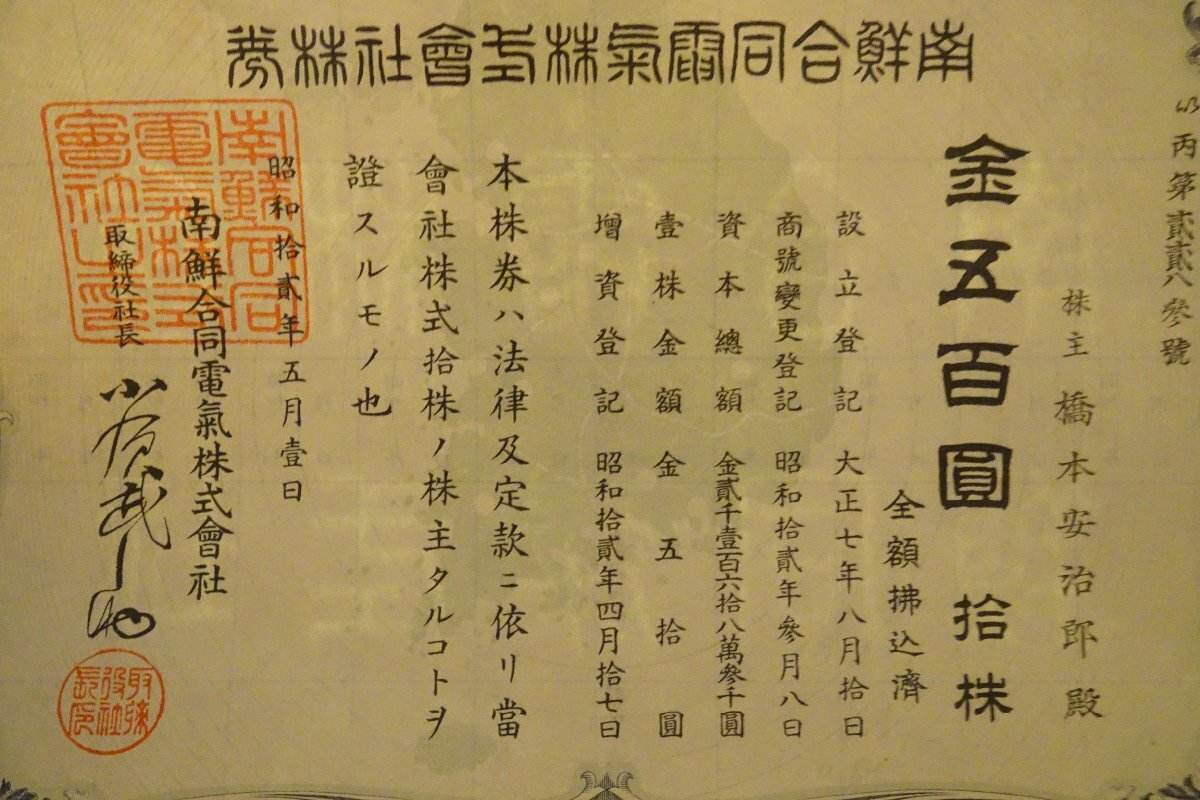 南鮮合同電氣株式會社株券
丙第貳貳八參號
株主 橋本安治郎殿
金五百圓 拾株
全額拂込濟
設立登記 大正七年八月拾日
商號變更登記 昭和拾貳年參月八日
資本總額 金貳千壹百六拾八萬參千圓
壹株金額 金五拾圓
增資登記 昭和拾貳年四月拾七日
本株券ハ法律及定款ニ依リ當
會社株式拾株ノ株主タルコトヲ
證スルモノ也
昭和拾貳年五月壹日
南鮮合同電氣株式會社
取締役社長
南鮮合同
電氣株式
會社之印
取締
役社
長印